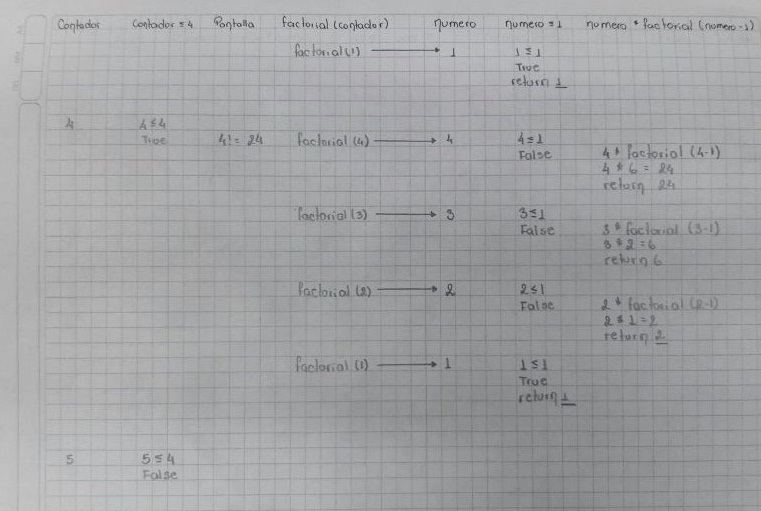 Contador Contador ≤ 4 Pantalla factorial (contador) numero numero ≤ 1 numero * factorial (numero-1)
factorial (1) → 1 1 ≤ 1
True
return 1
4 4 ≤ 4
True 4! = 24 factorial (4) → 4 4 ≤ 1
False 4 * factorial (4-1)
4 * 6 = 24
return 24
factorial (3) → 3 3 ≤ 1
False 3 * factorial (3-1)
3 * 2 = 6
return 6
factorial (2) → 2 2 ≤ 1
False 2 * factorial (2-1)
2 * 1 = 2
return 2
factorial (1) → 1 1 ≤ 1
True
return 1
5 5 ≤ 4
False